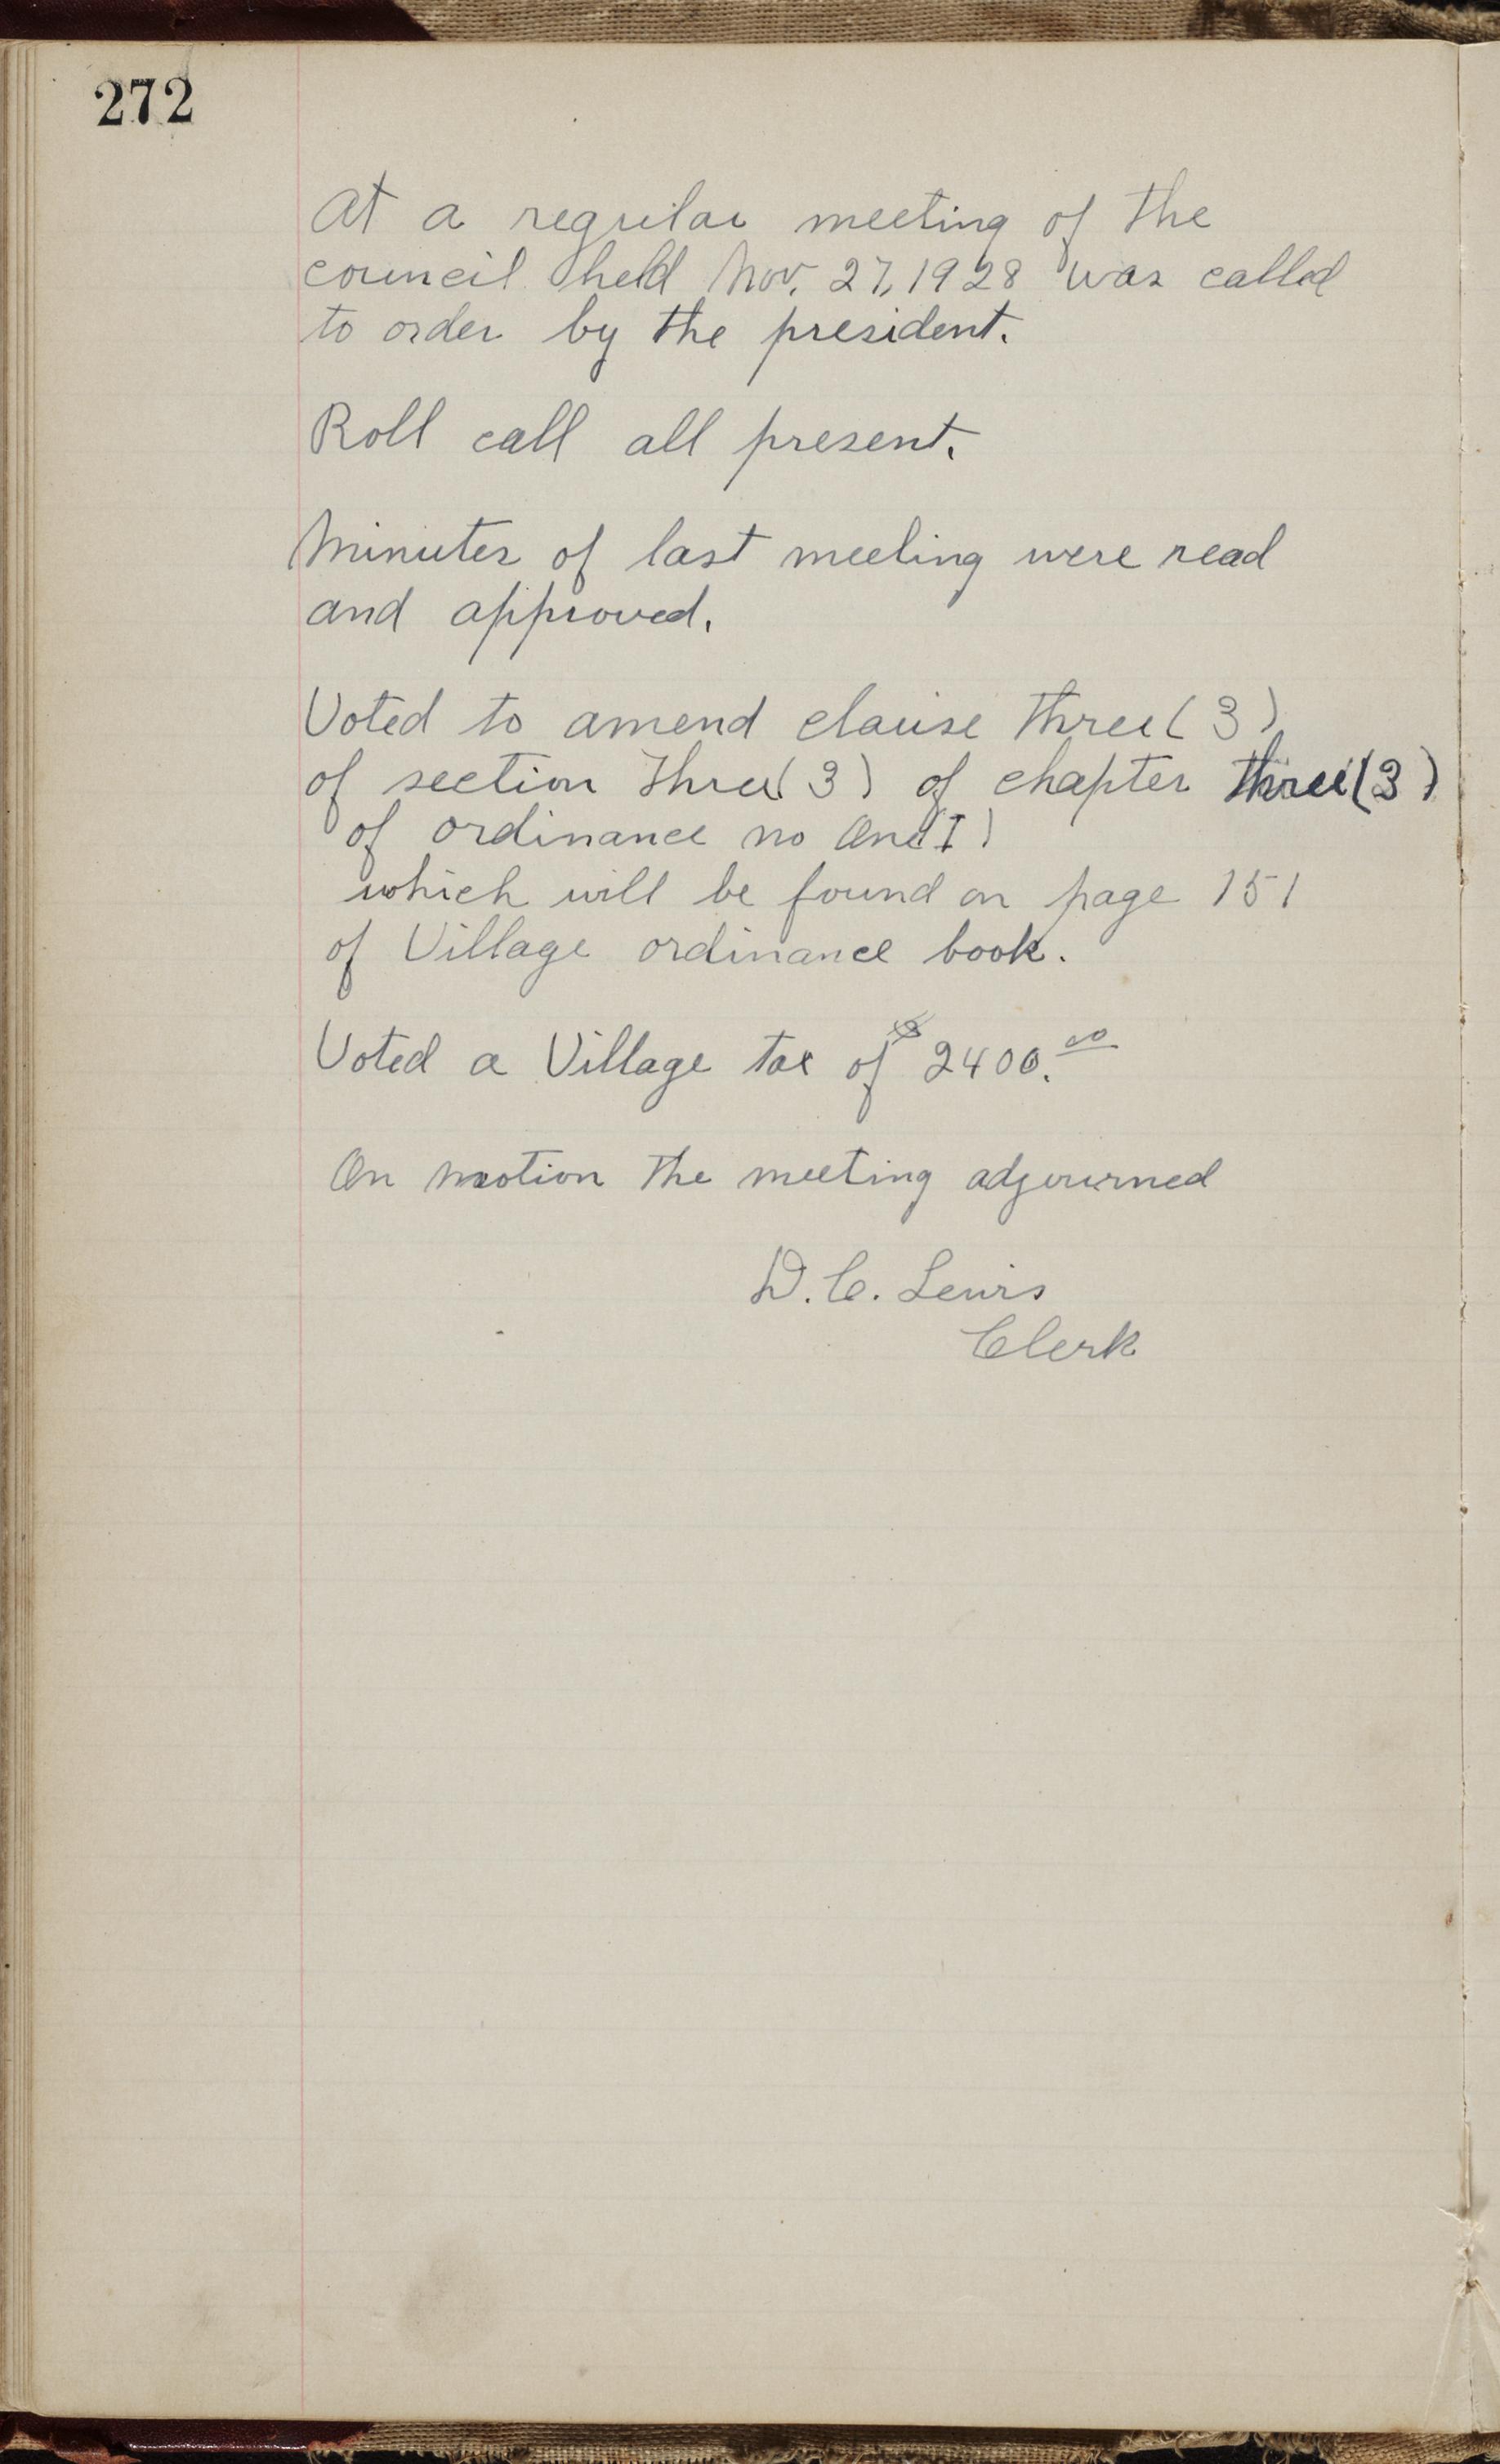 272
At a regular meeting of the
council held Nov. 27, 1928 was called
to order by the president.
Roll call all present.
Minutes of last meeting were read
and approved.
Voted to amend clause three (3)
of section three (3) of chapter three (3)
of ordinance no One (I)
which will be found on page 151
of Village ordinance book.
Voted a Village tax of $ 2400.00
On motion the meeting adjourned
D. C. Lewis
Clerk